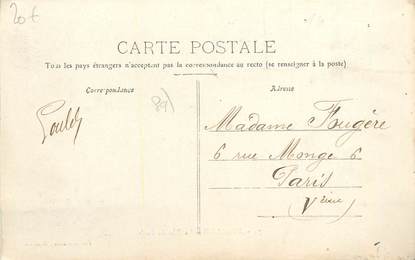 20 €
CARTE POSTALE
Tous les pays étrangers n'acceptent pas la correspondance au recto (se renseigner à la poste)
Correspondance
Adresse
89)
Madame Fougère
6 rue Monge 6
Paris
Vème